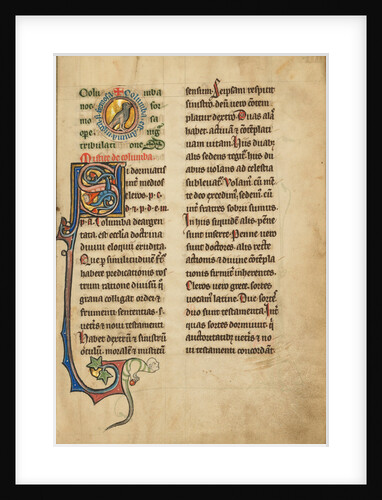 Colu mba
nos sa
mo for
ope nig
tribulati one
Mistice de columba
Si dormiatis
int medios
cleros p c
d & p d e m
p a Columba deargen
tata est ecclia doctrina
diuini eloquii erudita
Que p similitudine
habere predicationis ros
trum ratione diuisu q
grana colligat ordei &
frumenti sententias s
ueteris & noui testamenti
Habet dextru & sinistru
oculum morale & misticu
sensum Seipsam respicit
sinistro deu uero contem
platur dextro Duas alas
habet actiua & conteplati
uam uitam
alis sedens tegit his duab
uolans ad celestia
subleuat Volam cu men
te deo excedim sedem cu
int fratres sobrii sumus
In his siquide alis penne
sunt inserte Penne uero
sunt doctores alis recte
actionis & diuine contepla
tionis firmit inherentes
Cleros uero grece sortes
uocam latine Due sortes
duo sunt testamenta Int
quas sortes dormiut q
auctoritatib ueteris & no
ui testamenti concordant